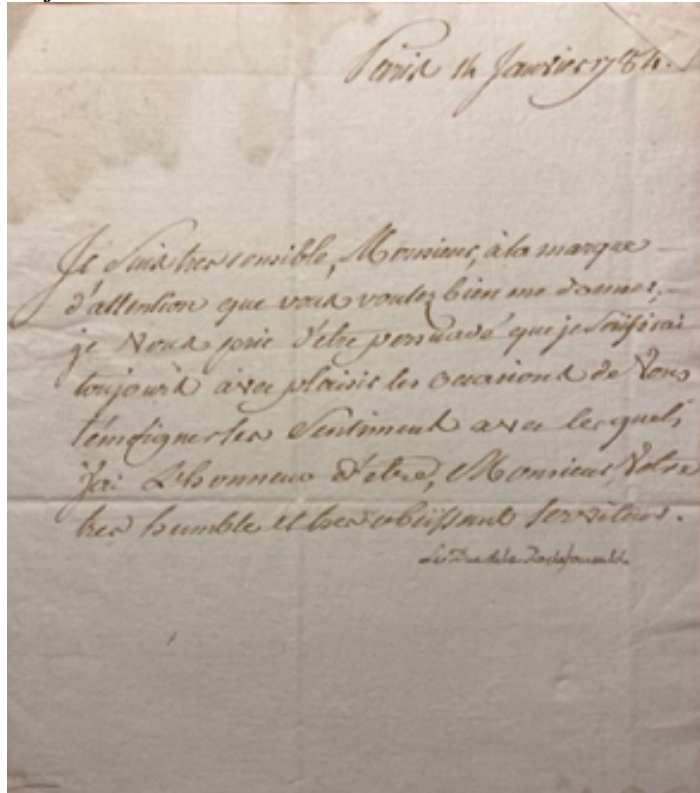 Paris 14 Janvier 1784.
Je Suis tres sensible, Monsieur, à la marque
d'attention que vous voulez bien me donner,
je Vous prie d'être persuadé que je Saisirai
toujours avec plaisir les occasions de Vous
témoigner les Sentimens avec lesquels
J'ai L'honneur d'être, Monsieur, Votre
tres humble et tres obéissant Serviteur.
Le Duc de la Rochefoucauld